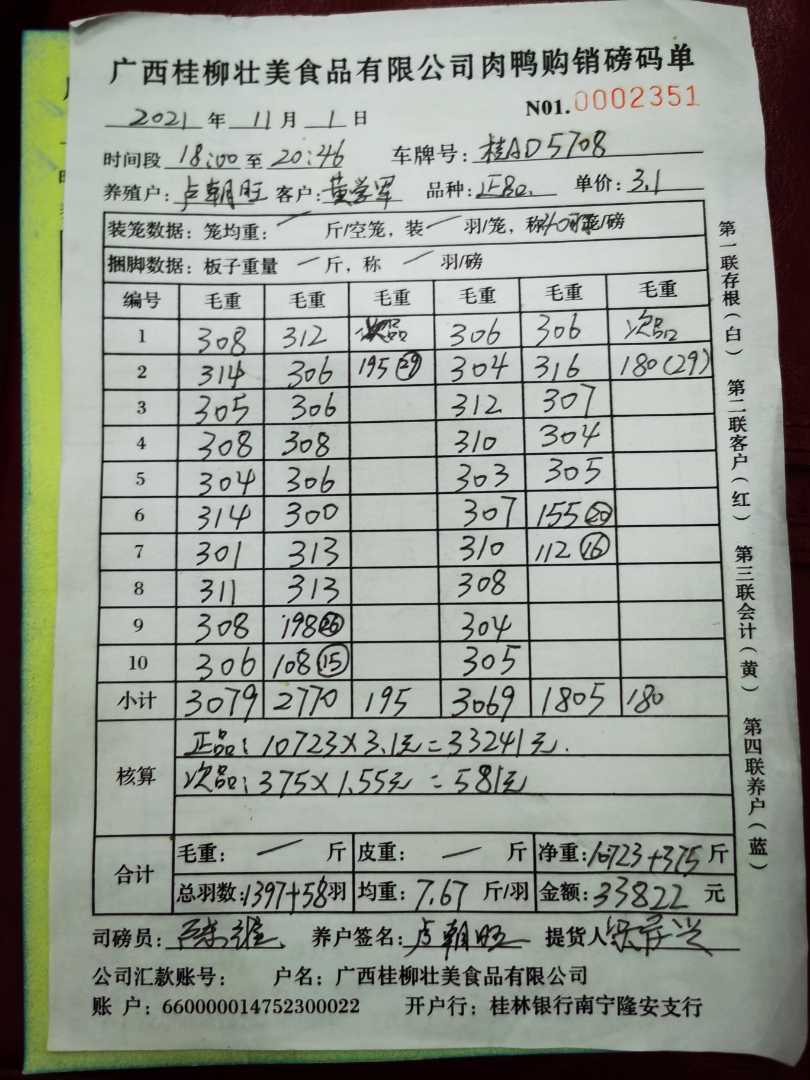 广西桂柳壮美食品有限公司肉鸭购销磅码单
N01.0002351
2021 年 11 月 1 日
时间段 18:00 至 20:46 车牌号: 桂AD5708
养殖户: 卢朝旺 客户: 黄学军 品种: 正品. 单价: 3.1
装笼数据: 笼均重: 一 斤/空笼, 装 一 羽/笼, 称 40 笼/磅
捆脚数据: 板子重量 一 斤, 称 一 羽/磅
编号 毛重 毛重 毛重 毛重 毛重 毛重
1 308 312 次品 306 306 次品
2 314 306 195(29) 304 316 180(29)
3 305 306 312 307
4 308 308 310 304
5 304 306 303 305
6 314 300 307 155(20)
7 301 313 310 112(16)
8 311 313 308
9 308 198(26) 304
10 306 108(15) 305
小计 3079 2770 195 3069 1805 180
核算
正品: 10723×3.1元=33241元.
次品: 375×1.55元=581元
合计
毛重: 一 斤 皮重: 一 斤 净重: 10723+375 斤
总羽数: 1397+58 羽 均重: 7.67 斤/羽 金额: 33822 元
司磅员: 养户签名: 卢朝旺 提货人
公司汇款账号: 户名: 广西桂柳壮美食品有限公司
账 户: 660000014752300022 开户行: 桂林银行南宁隆安支行
第一联存根(白) 第二联客户(红) 第三联会计(黄) 第四联养户(蓝)